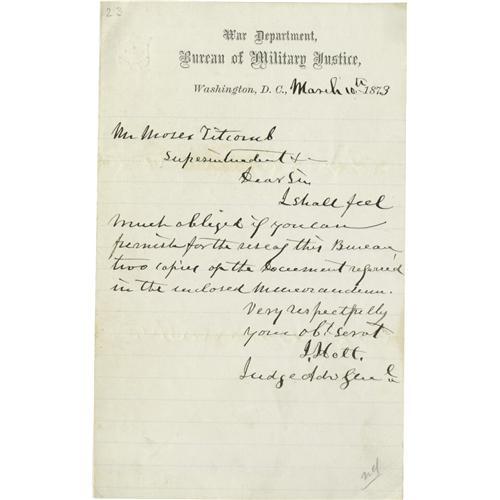 23
War Department,
Bureau of Military Justice,
Washington, D. C., March 10th 1873
Mr Moses Titcomb
Superintendent &
Dear Sir
I shall feel
much obliged if you can
furnish for the use of this Bureau
two copies of the Document referred
in the enclosed Memorandum.
Very respectfully
your obt servt
J. Holt.
Judge Adv Gen